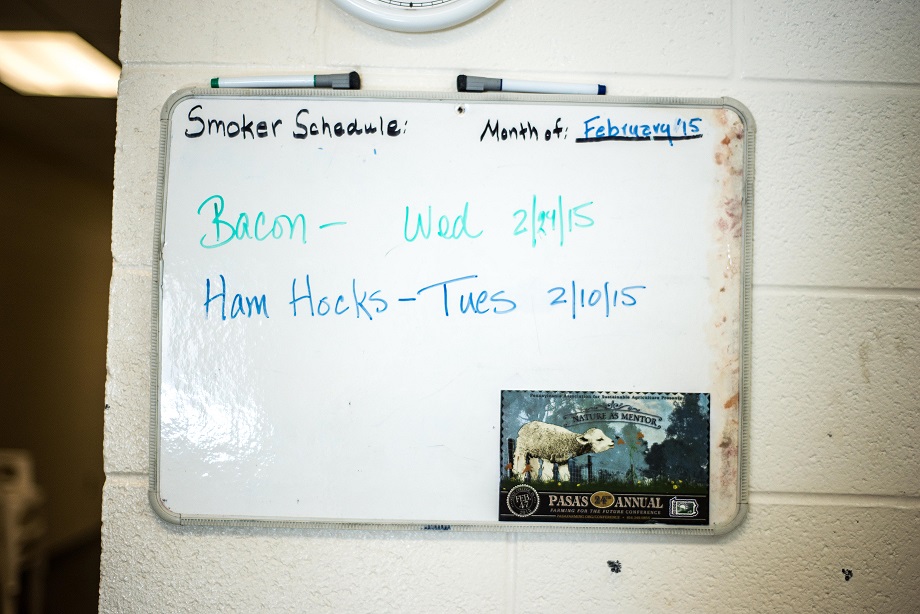 Smoker Schedule:
Month of: February '15
Bacon - Wed 2/24/15
Ham Hocks - Tues 2/10/15
Pennsylvania Association for Sustainable Agriculture Presents
NATURE AS MENTOR
FEB.
PASA'S 24th ANNUAL
FARMING FOR THE FUTURE CONFERENCE